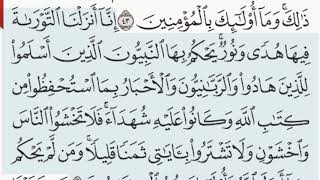 ذَٰلِكَ ۚ وَمَا أُولَٰئِكَ بِالْمُؤْمِنِينَ ﴿٤٣﴾ إِنَّا أَنزَلْنَا التَّوْرَاةَ
فِيهَا هُدًى وَنُورٌ ۚ يَحْكُمُ بِهَا النَّبِيُّونَ الَّذِينَ أَسْلَمُوا
لِلَّذِينَ هَادُوا وَالرَّبَّانِيُّونَ وَالْأَحْبَارُ بِمَا اسْتُحْفِظُوا مِن
كِتَابِ اللَّهِ وَكَانُوا عَلَيْهِ شُهَدَاءَ ۚ فَلَا تَخْشَوُا النَّاسَ
وَاخْشَوْنِ وَلَا تَشْتَرُوا بِآيَاتِي ثَمَنًا قَلِيلًا ۚ وَمَن لَّمْ يَحْكُم